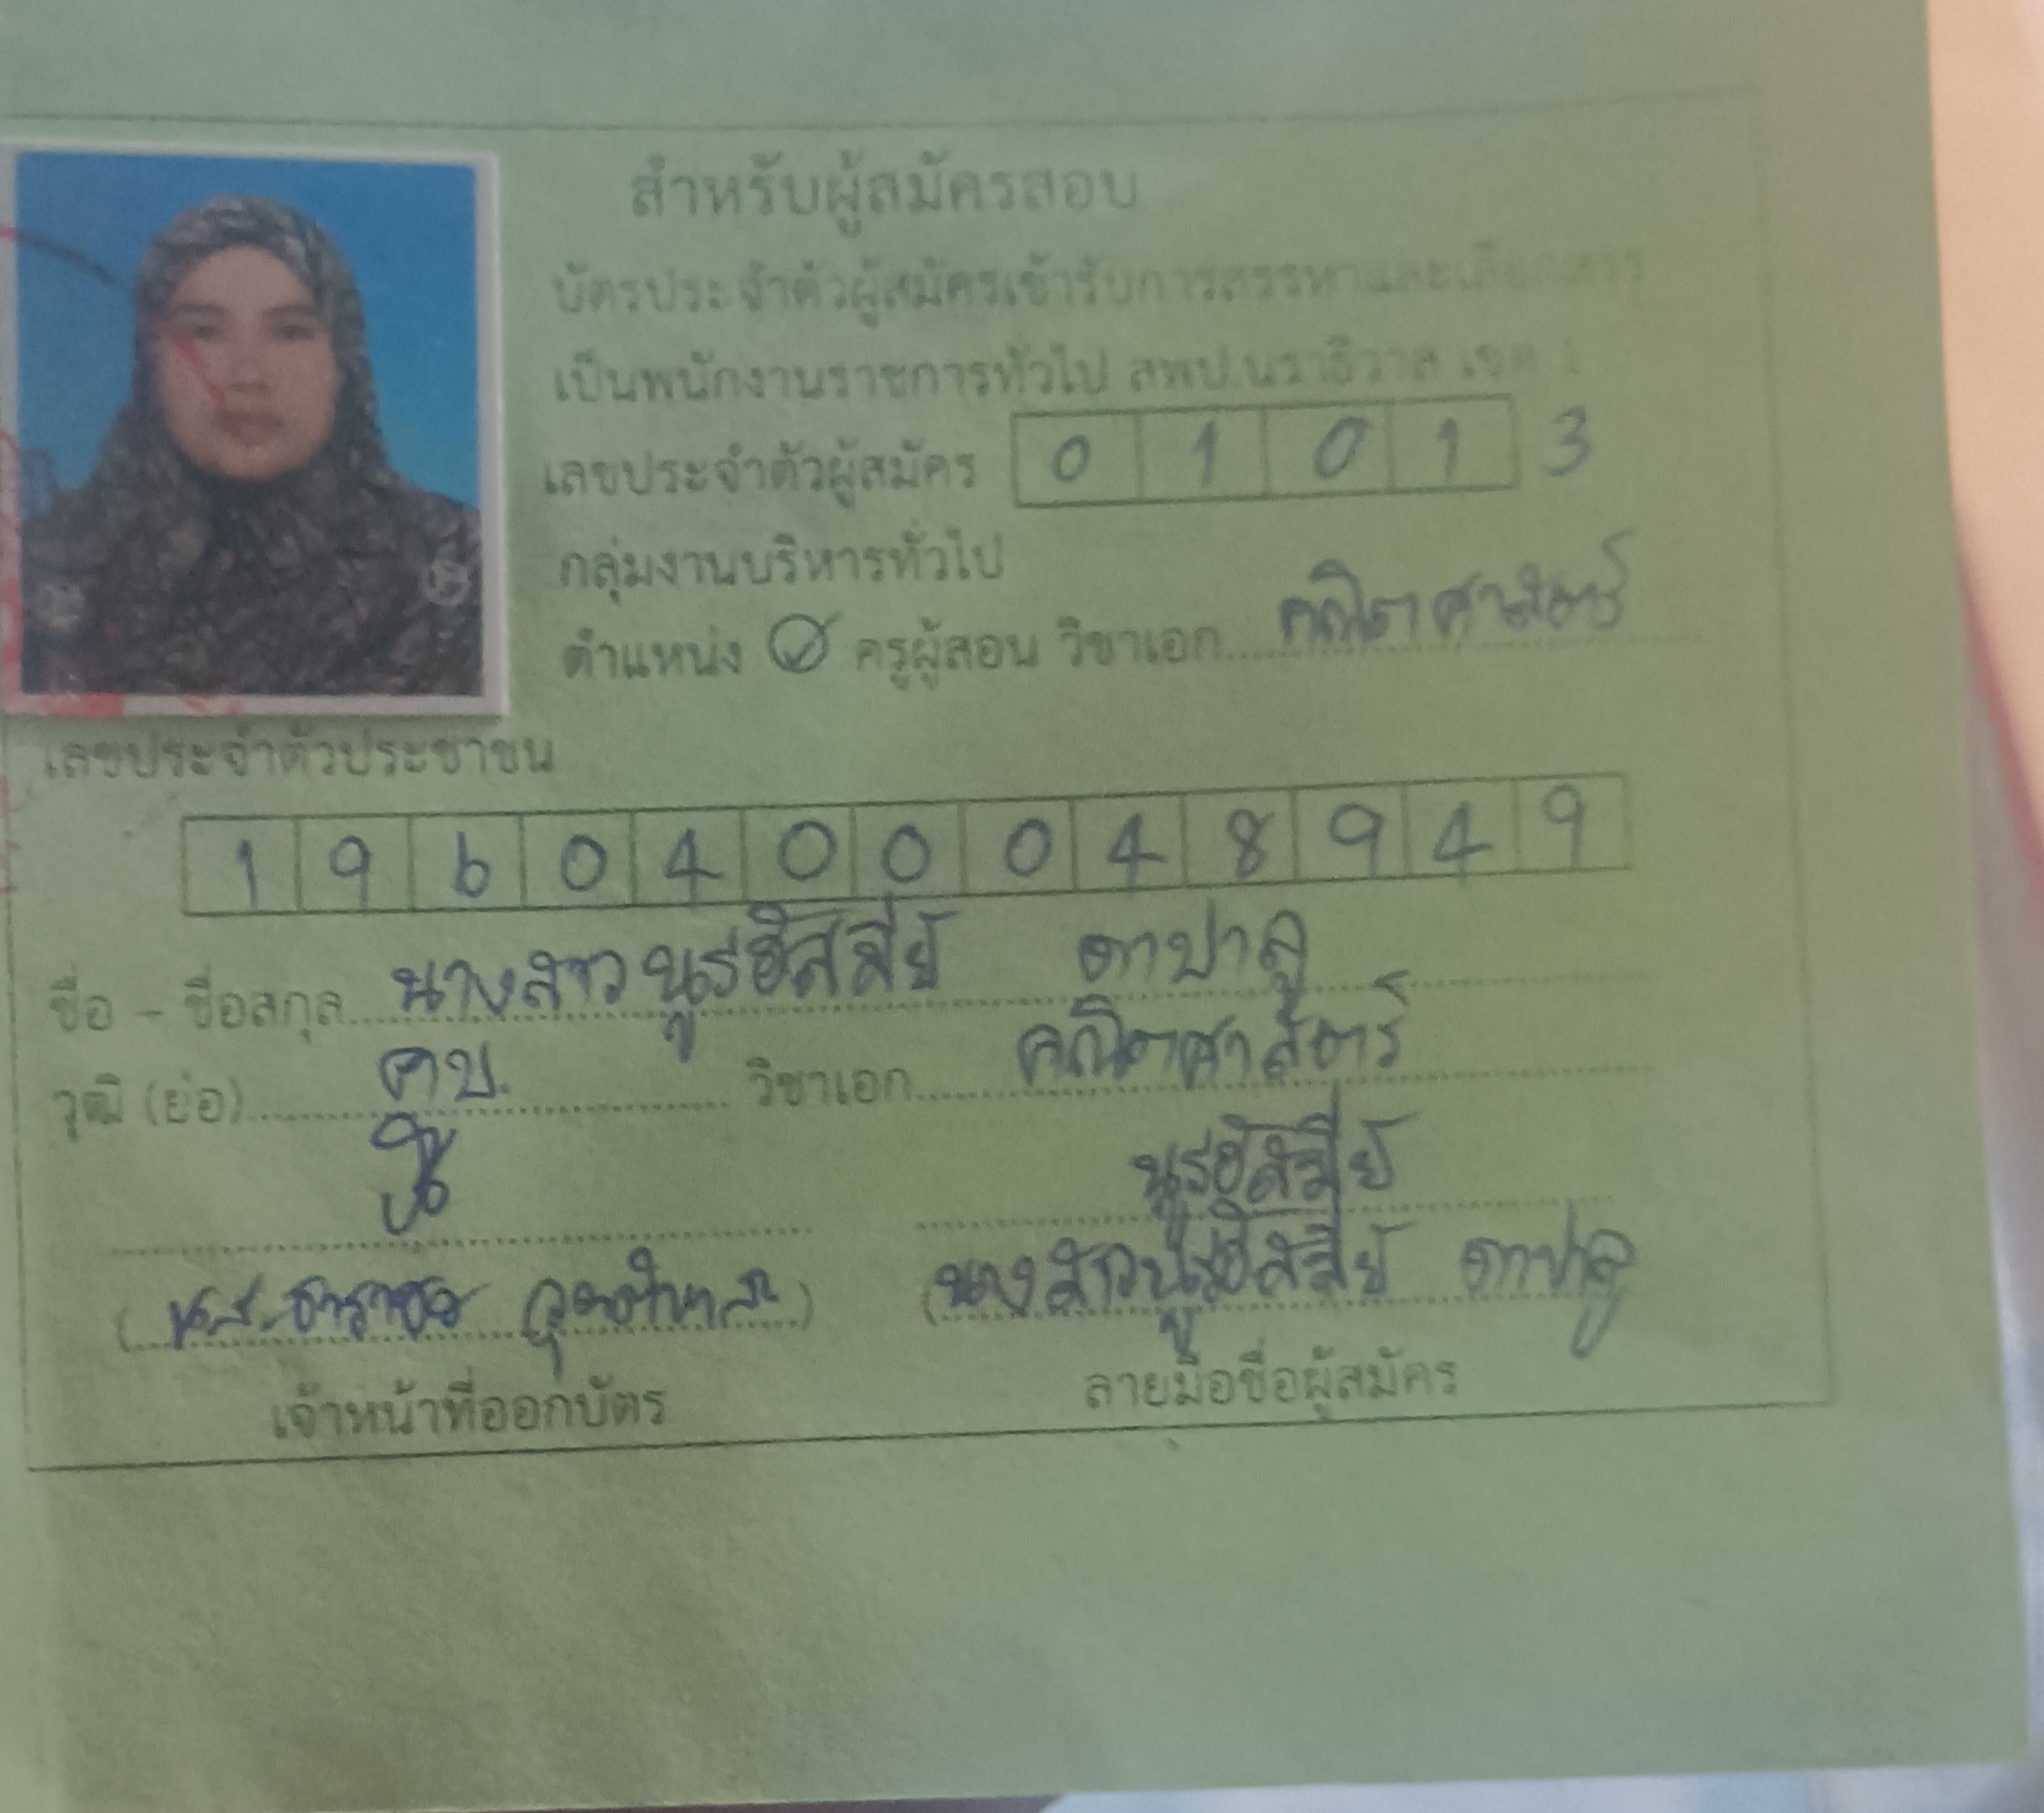 สำหรับผู้สมัครสอบ
บัตรประจำตัวผู้สมัครเข้ารับการสรรหาและเลือกสรร
เป็นพนักงานราชการทั่วไป สพป.นราธิวาส เขต 1
เลขประจำตัวผู้สมัคร 0 1 0 1 3
กลุ่มงานบริหารทั่วไป
ตำแหน่ง ครูผู้สอน วิชาเอก คณิตศาสตร์
เลขประจำตัวประชาชน
1 9 6 0 4 0 0 0 4 8 9 4 9
ชื่อ - ชื่อสกุล นางสาวนูรฮัสมีย์ ดาปาลู
วุฒิ (ย่อ) คบ. วิชาเอก คณิตศาสตร์
นูรฮัสมีย์
(น.ส. ) (นางสาวนูรฮัสมีย์ ดาปาลู
เจ้าหน้าที่ออกบัตร ลายมือชื่อผู้สมัคร